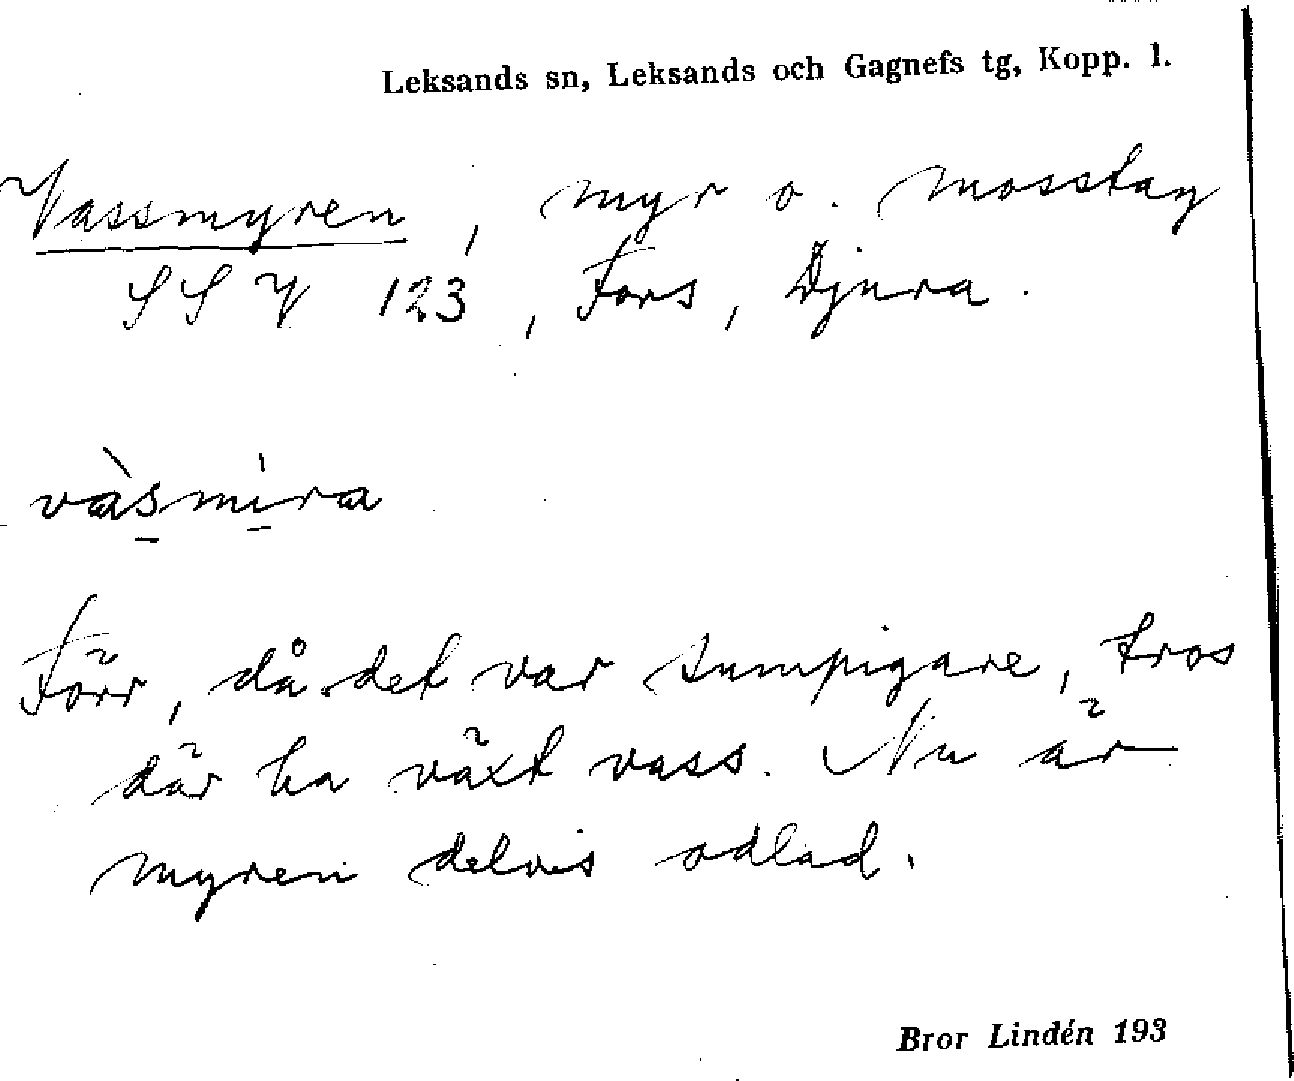 Leksands sn, Leksands och Gagnefs tg, Kopp. l.
Vassmyren, myr o. mosstag
SSV 123, Fors, Djura.
vàsmìra
Förr, då det var sumpigare, tros
där ha växt vass. Nu är
myren delvis odlad.
Bror Lindén 193